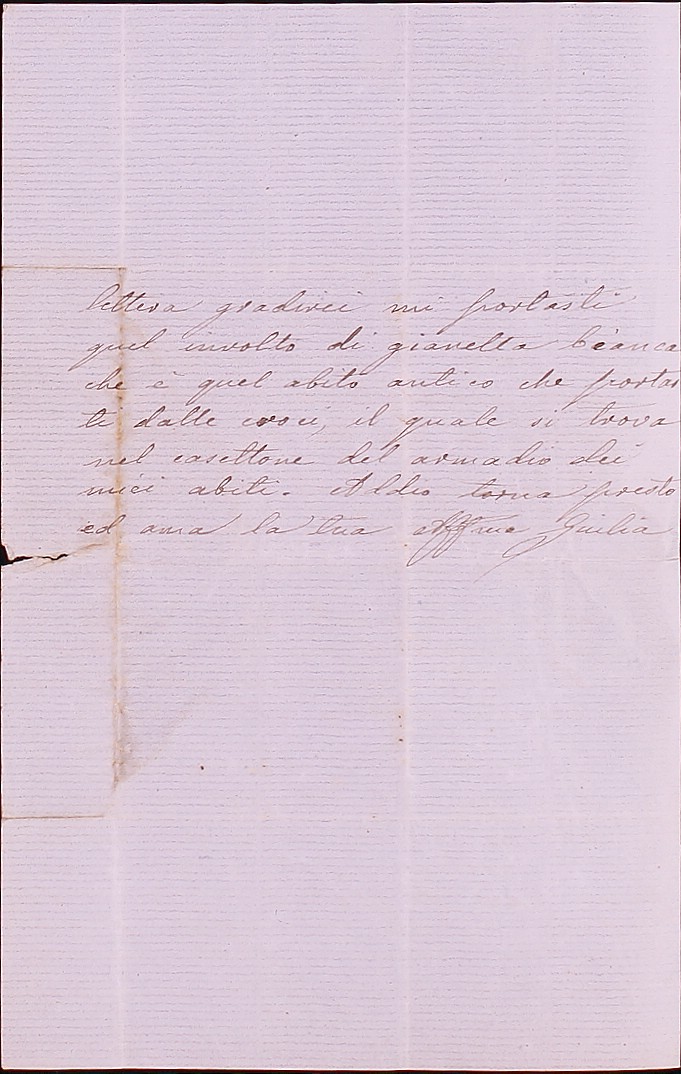 lettera gradirei mi portasti
quel involto di gianetta bianca
che è quel abito antico che portas
ti dalle croci, il quale si trova
nel casettone del armadio dei
miei abiti. Addio torna presto
ed ama la tua affma Giulia